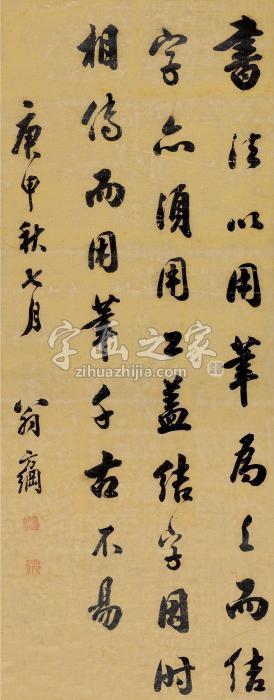 書法以用筆為上而結
字亦須用工蓋結字因時
相傳而用筆千古不易
庚申秋七月
翁方綱
字画之家
zihuazhijia.com